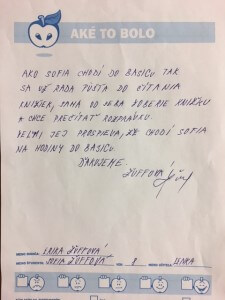 AKÉ TO BOLO
AKO SOFIA CHODÍ DO BASICU TAK
SA UŽ RADA PÚŠŤA DO ČÍTANIA
KNIŽIEK, SAMA OD SEBA ZOBERIE KNIŽKU
A CHCE PREČÍTAŤ ROZPRÁVKU.
VEĽMI JEJ PROSPIEVA, ŽE CHODÍ SOFIA
NA HODINY DO BASICU.
ĎAKUJEME.
ŽUFFOVÁ
ERIKA ŽUFFOVÁ
SOFIA ŽUFFOVÁ 8 LENKA